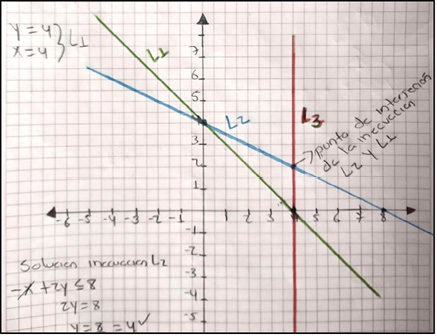 y = 4
x = 4 } L1
L1
L2
L3
punto de Interseción
de la inecuación
L2 Y L1
7
5
4
2
1
-6 -5 -4 -3 -2 -1 1 2 3 5 6 7 8
-1
-2
-3
-4
-5
Solucion inecuacion L2
-x + 2y ≤ 8
2y = 8
y = 8 = 4 ✓